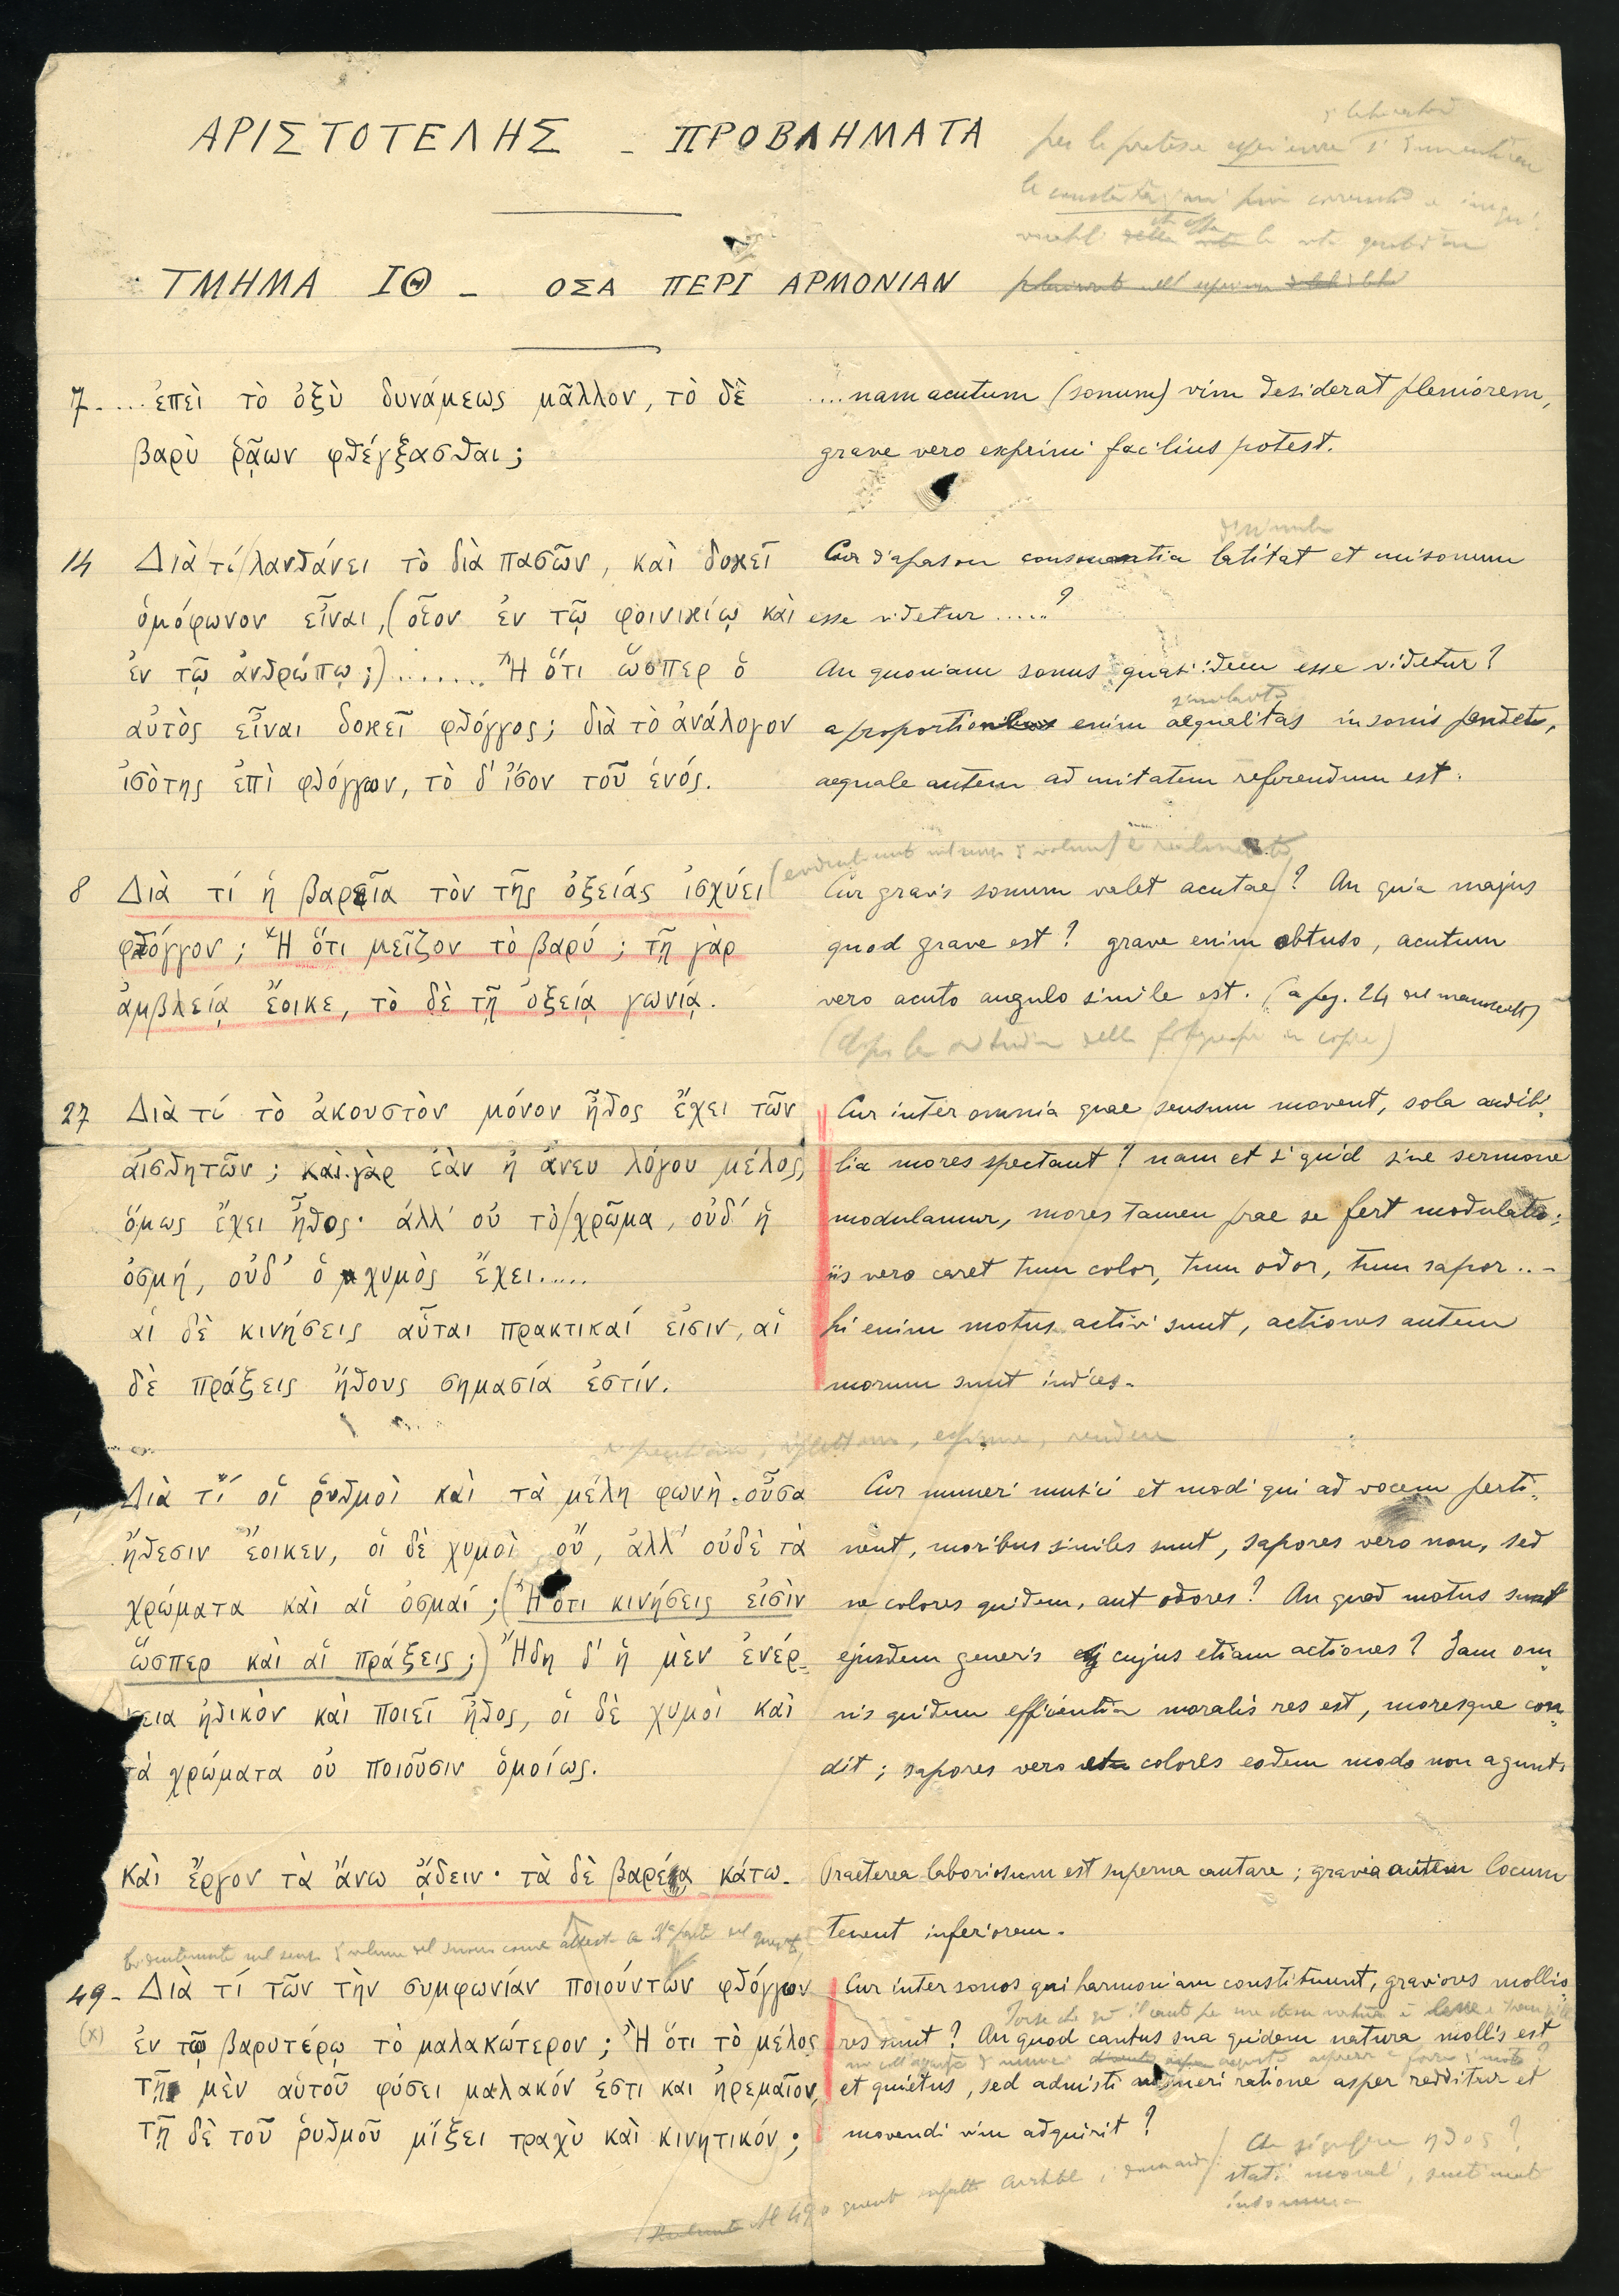 ΑΡΙΣΤΟΤΕΛΗΣ - ΠΡΟΒΛΗΜΑΤΑ
ΤΜΗΜΑ ΙΘ - ΟΣΑ ΠΕΡΙ ΑΡΜΟΝΙΑΝ
7.....ἐπεὶ τὸ ὀξὺ δυνάμεως μᾶλλον, τὸ δὲ
βαρὺ ῥᾷων φθέγξασθαι;
....nam acutum (sonum) vim desiderat pleniorem,
grave vero exprimi facilius potest.
14 Διὰ τί λανθάνει τὸ διὰ πασῶν, καὶ δοκεῖ
ὁμόφωνον εἶναι, (οἷον ἐν τῷ φοινικίῳ καὶ
ἐν τῷ ἀνθρώπῳ;)....... Ἢ ὅτι ὥσπερ ὁ
αὐτὸς εἶναι δοκεῖ φθόγγος; διὰ τὸ ἀνάλογον
ἰσὸτης ἐπὶ φθόγγων, τὸ δ' ἴσον τοῦ ἑνός.
Cur diapason consonantia latitat et unisonum
esse videtur .....?
An quoniam sonus quasi idem esse videtur?
a proportione enim aequalitas in sonis pendet,
aequale autem ad unitatem referendum est.
8 Διὰ τί ἡ βαρεῖα τὸν τῆς ὀξείάς ἰσχύει
φθόγγον; Ἢ ὅτι μεῖζον τὸ βαρύ; τῇ γὰρ
ἀμβλείᾳ ἔοικε, τὸ δὲ τῇ ὀξείᾳ γωνίᾳ.
Cur gravis sonum valet acutae? An quia majus
quod grave est? grave enim obtuso, acutum
vero acuto angulo simile est. (a pag. 24 del manoscritto)
27 Διὰ τί τὸ ἀκουστὸν μόνον ἦθος ἔχει τῶν
αἰσθητῶν; καὶ γὰρ ἐὰν ᾖ ἄνευ λόγου μέλος,
ὅμως ἔχει ἦθος· ἀλλ' οὐ τὸ χρῶμα, οὐδ' ἡ
ὀσμή, οὐδ' ὁ χυμὸς ἔχει.....
αἱ δὲ κινήσεις αὗται πρακτικαί εἰσιν, αἱ
δὲ πράξεις ἤθους σημασία ἐστίν.
Cur inter omnia quae sensum movent, sola audibi-
lia mores spectant? nam et si quid sine sermone
modulamur, mores tamen prae se fert modulatio;
iis vero caret tum color, tum odor, tum sapor ...
hi enim motus activi sunt, actiones autem
morum sunt indices.
Διὰ τί οἱ ῥυθμοὶ καὶ τὰ μέλη φωνὴ οὖσα
ἤθεσιν ἔοικεν, οἱ δὲ χυμοὶ οὔ, ἀλλ' οὐδὲ τὰ
χρώματα καὶ αἱ ὀσμαί; (Ἢ ὅτι κινήσεις εἰσὶν
ὥσπερ καὶ αἱ πράξεις;) Ἤδη δ' ἡ μὲν ἐνέρ-
γεια ἠθικὸν καὶ ποιεῖ ἦθος, οἱ δὲ χυμοὶ καὶ
τὰ χρώματα οὐ ποιοῦσιν ὁμοίως.
Cur numeri musici et modi qui ad vocem perti-
nent, moribus similes sunt, sapores vero non, sed
ne colores quidem, aut odores? An quod motus sunt
ejusdem generis cujus etiam actiones? Jam om-
nis quidem efficientia moralis res est, moresque con-
dit; sapores vero et colores eodem modo non agunt.
Καὶ ἔργον τὰ ἄνω ᾄδειν· τὰ δὲ βαρέα κάτω.
Praeterea laboriosum est superna cantare; gravia autem locum
tenent inferiorem.
49 - Διὰ τί τῶν τὴν συμφωνίάν ποιούντων φθόγγων
(x) ἐν τῷ βαρυτέρῳ τὸ μαλακώτερον; Ἢ ὅτι τὸ μέλος
τῇ μὲν αὑτοῦ φύσει μαλακόν ἐστι και ἠρεμαῖον,
τῇ δὲ τοῦ ῥυθμοῦ μίξει τραχὺ καὶ κινητικόν;
Cur inter sonos qui harmoniam constituunt, graviores mollio-
res sunt? An quod cantus sua quidem natura mollis est
et quietus, sed admisti numeri ratione asper redditur et
movendi vim adquirit?
Che significa ηθος?
stati morali, sentimenti
insomma